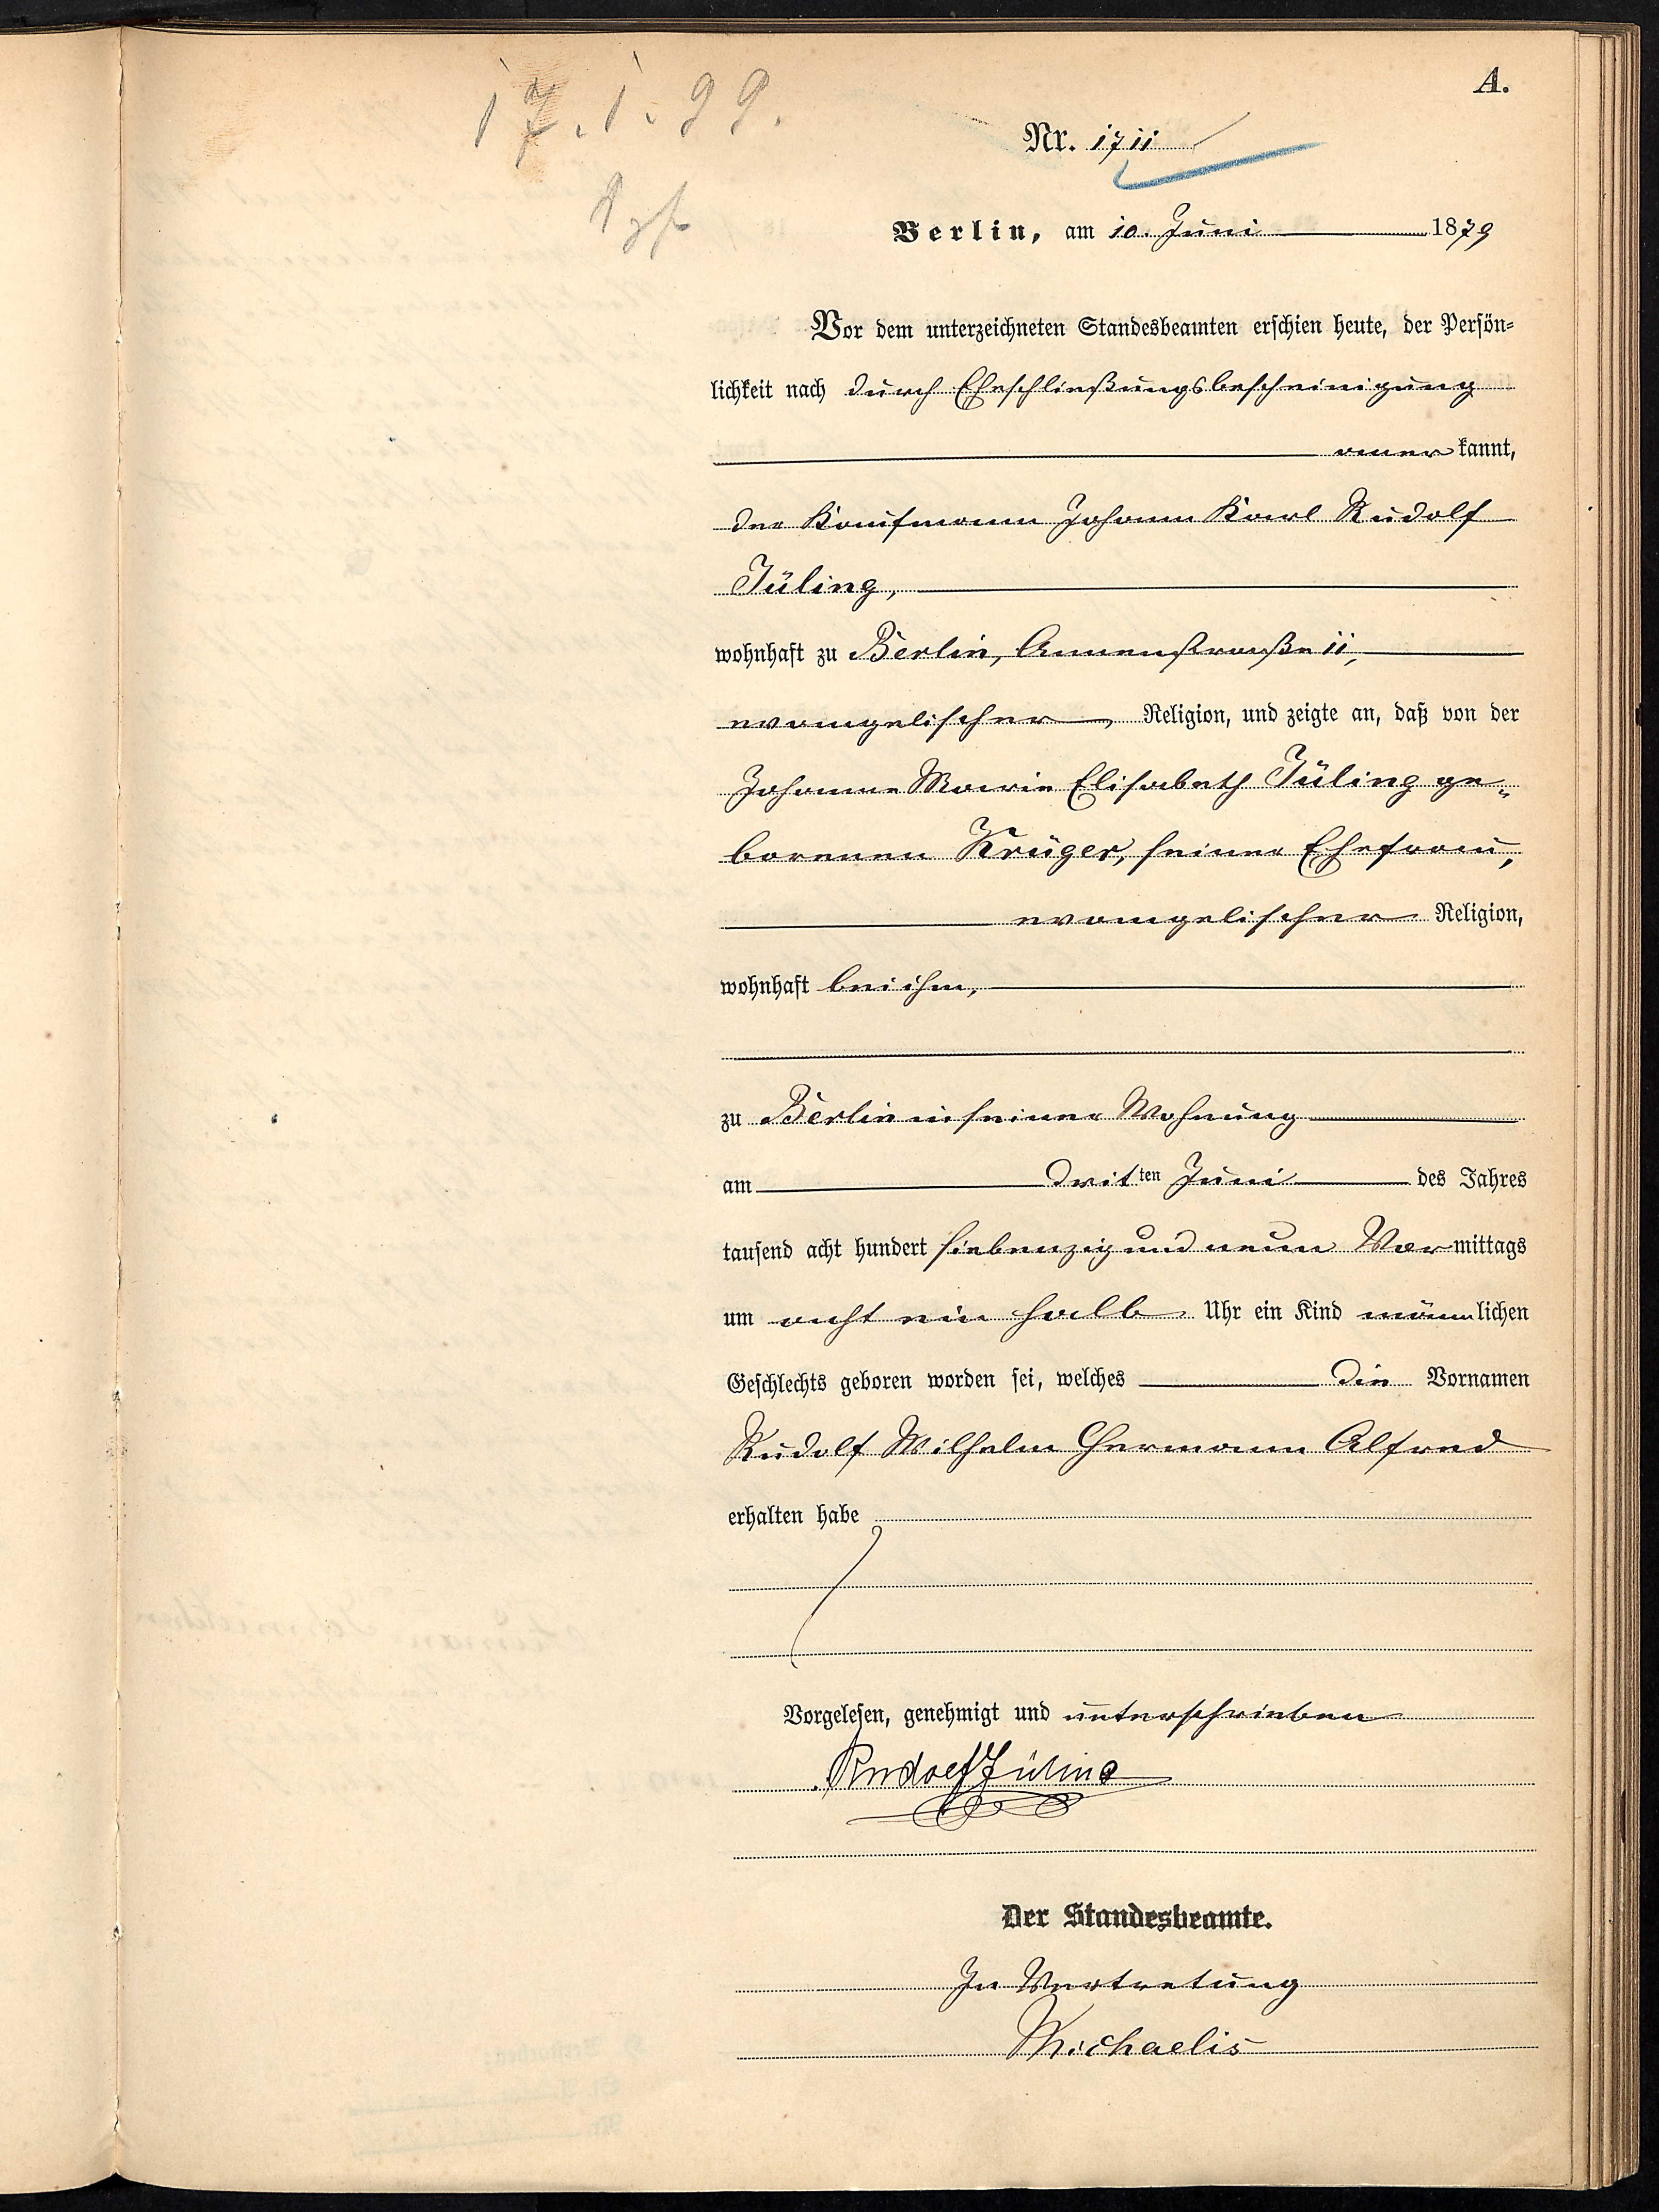 A.
17.1.99.
Nr. 1711
Berlin, am 10. Juni 1879
Vor dem unterzeichneten Standesbeamten erschien heute, der Persön-
lichkeit nach durch Eheschließungsbescheinigung
anerkannt,
der Kaufmann Johann Karl Rudolf
Jüling,
wohnhaft zu Berlin, Annenstraße 11,
evangelischer Religion, und zeigte an, daß von der
Johanne Marie Elisabeth Jüling ge-
borenen Krüger, seiner Ehefrau,
evangelischer Religion,
wohnhaft bei ihm,
zu Berlin in seiner Wohnung
am dritten Juni des Jahres
tausend acht hundert siebenzig und neun Vormittags
um acht ein halb Uhr ein Kind männlichen
Geschlechts geboren worden sei, welches die Vornamen
Rudolf Wilhelm Hermann Alfred
erhalten habe
Vorgelesen, genehmigt und unterschrieben
Rudolf Jüling
Der Standesbeamte.
In Vertretung
Michaelis